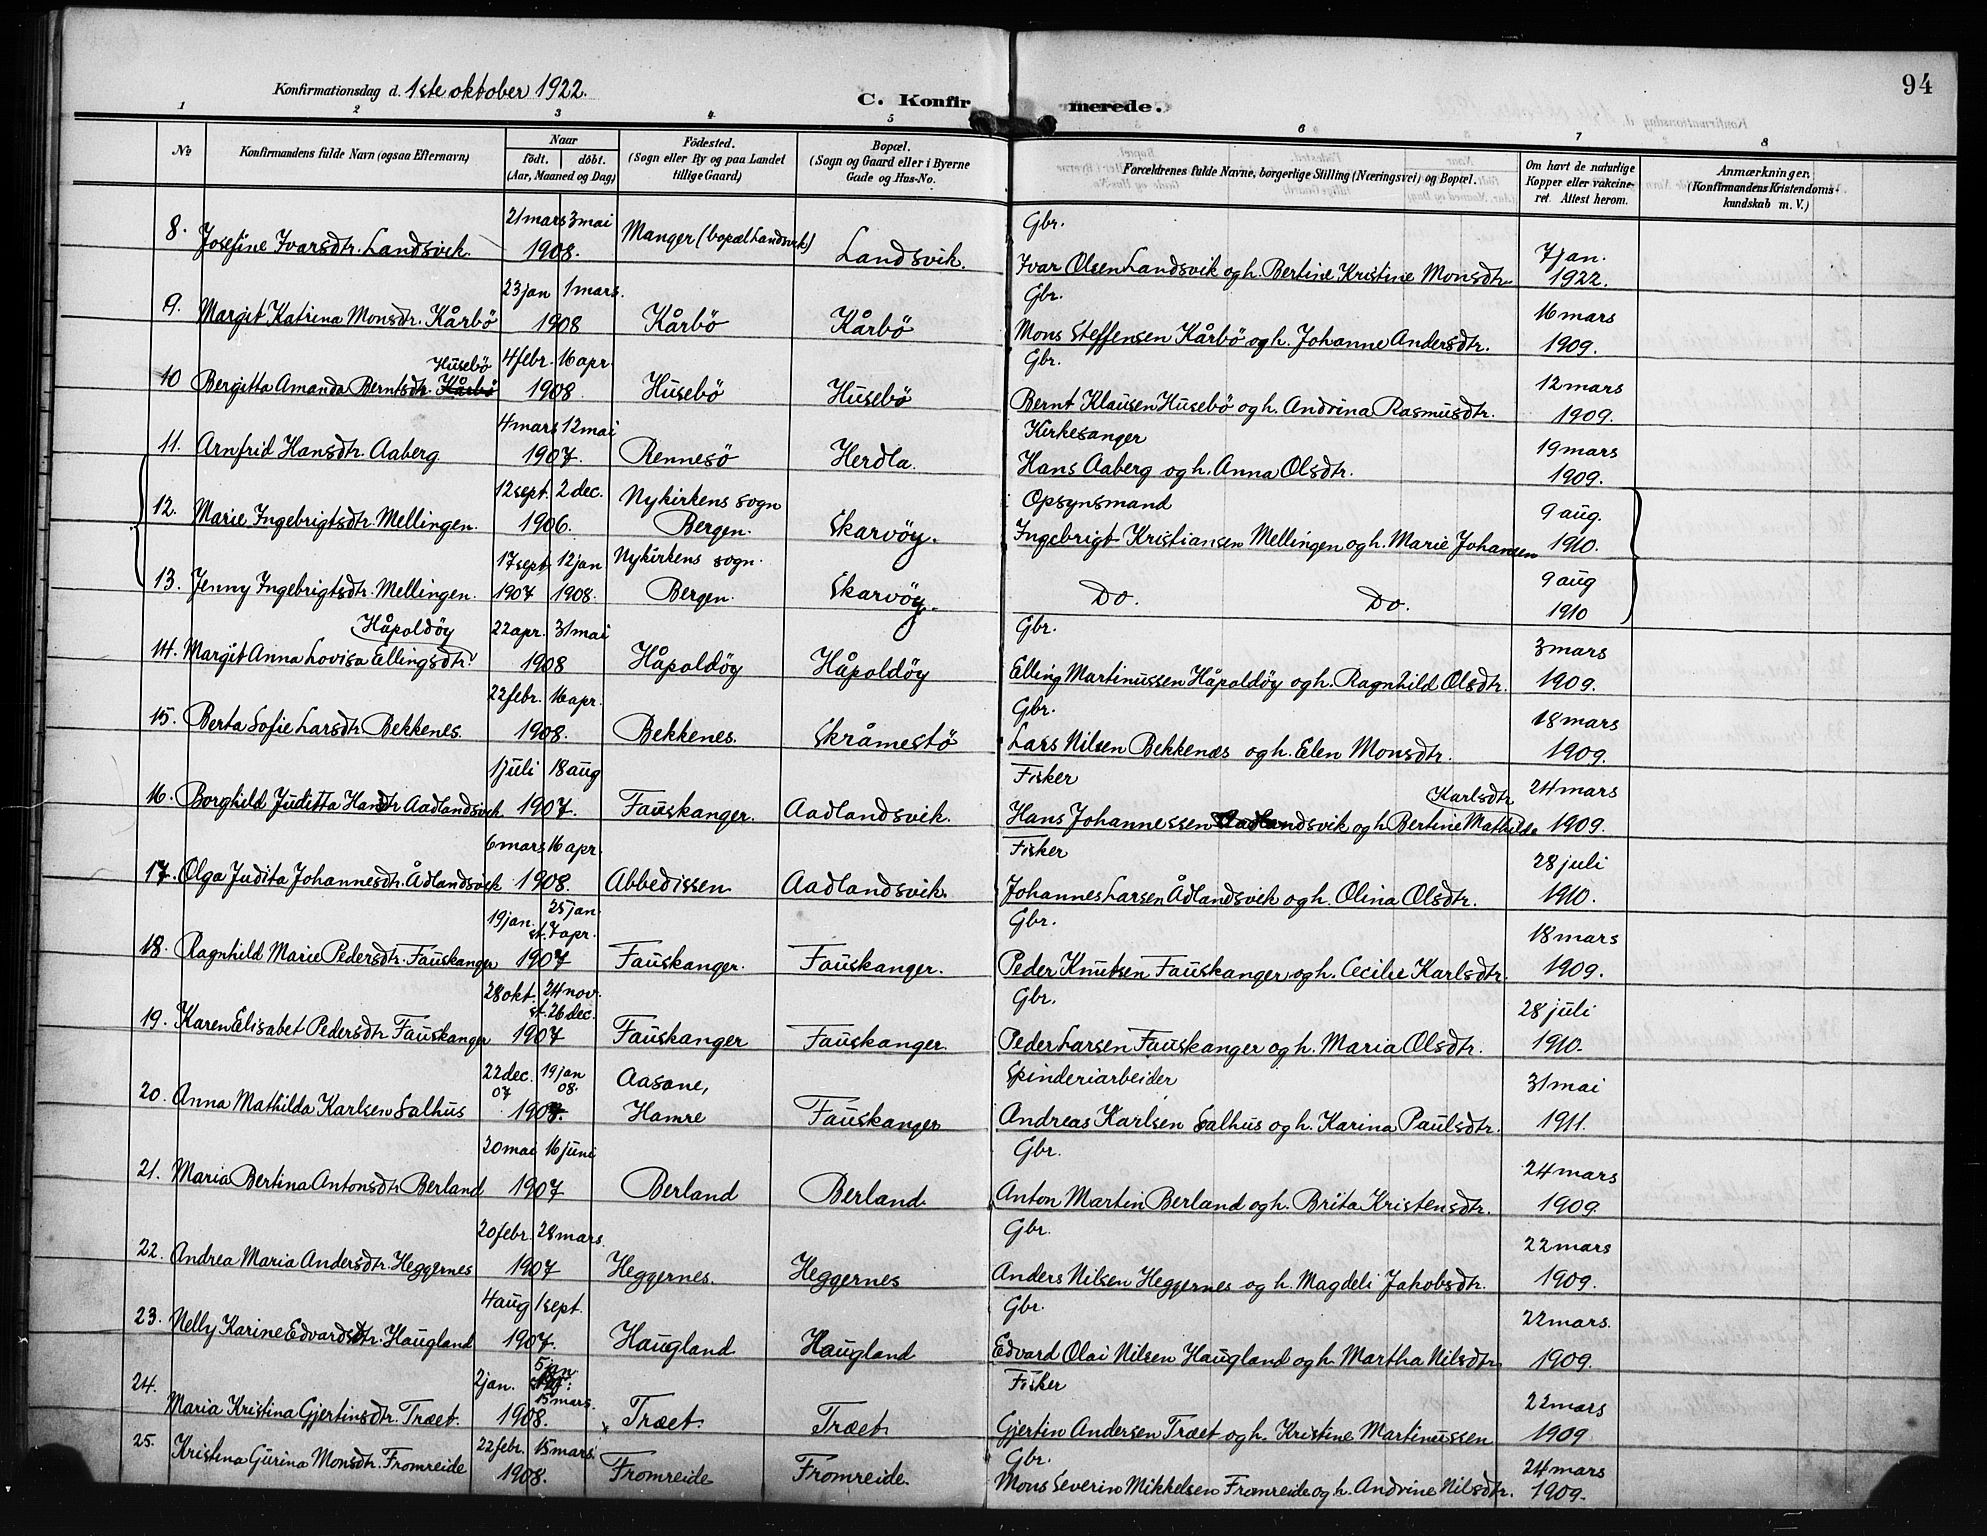 94
Konfirmationsdag d. 1ste oktober 1922.
C. Konfirmerede.
1 2 3 4 5 6 7 8
No Konfirmandens fulde Navn (ogsaa Efternavn) Naar födt. döbt. (Aar, Maaned og Dag) Födested. (Sogn eller By og paa Landet tillige Gaard) Bopæl. (Sogn og Gaard eller i Byerne Gade og Hus-No. Forældrenes fulde Navne, borgerlige Stilling (Næringsvei) og Bopæl. Om havt de naturlige Kopper eller vakcineret. Attest herom. Anmærkninger. (Konfirmandens Kristendomskundskab m. V.)
21 mars 3 mai Gbr.
8. Josefine Ivarsdtr. Landsvik. 1908. Manger (bopæl Landsvik) Landsvik. Ivar Olsen Landsvik og h. Bertine Kristine Monsdtr. 7 jan. 1922.
23 jan 1 mars. Gbr.
9. Margit Katrina Monsdtr. Kårbö 1908 Kårbö Kårbö Mons Steffensen Kårbö og h. Johanne Andersdtr. 16 mars 1909.
Husebö 4 febr. 16 apr. Gbr.
10 Bergitta Amanda Berntsdtr. Kårbö 1908. Husebö Husebö Bernt Klausen Husebö og h. Andrina Rasmusdtr. 12 mars 1909.
4 mars 12 mai Kirkesanger
11. Arnfrid Hansdtr. Aaberg 1907. Rennesö Herdla. Hans Aaberg og h. Anna Olsdtr. 19 mars 1909.
12 sept. 2 dec. Nykirkens sogn Opsynsmand
12. Marie Ingebrigtsdtr. Mellingen. 1906. Bergen. Skarvöy. Ingebrigt Kristiansen Mellingen og h. Marie Johansen 9 aug. 1910.
17 sept 12 jan Nykirkens sogn.
13. Jenny Ingebrigtsdtr. Mellingen. 1907 1908. Bergen. Skarvöy. Do. Do. 9 aug 1910
Håpoldöy 22 apr. 31 mai Gbr.
14. Margit Anna Lovisa Ellingsdtr. 1908 Håpoldöy Håpoldöy Elling Martinussen Håpoldöy og h. Ragnhild Olsdtr. 3 mars 1909.
22 febr. 16 apr. Gbr.
15. Berta Sofie Larsdtr. Bekkenes. 1908. Bekkenes. Skråmestö Lars Nilsen Bekkenæs og h. Elen Monsdtr. 18 mars 1909.
1 juli 18 aug Fisker Karlsdtr
16. Borghild Juditta Hansdtr. Aadlandsvik 1907. Fauskanger. Aadlandsvik. Hans Johannessen Aadlandsvik og h Bertine Mathilde 24 mars 1909.
6 mars 16 apr. Fisker
17. Olga Judita Johannesdtr. Ådlandsvik 1908. Abbedissen Aadlandsvik. Johannes Larsen Ådlandsvik og h. Olina Olsdtr. 28 juli 1910.
19 jan. 25 jan st. 7 apr. Gbr.
18. Ragnhild Marie Pedersdtr. Fauskanger 1907 Fauskanger. Fauskanger. Peder Knutsen Fauskanger og h. Cecilie Karlsdtr. 18 mars 1909.
28 okt. 24 nov. st. 26 dec. Gbr.
19. Karen Elisabet Pedersdtr. Fauskanger 1907 Fauskanger Fauskanger. Peder Larsen Fauskanger og h. Maria Olsdtr. 28 juli 1910.
22 dec. 07 19 jan 08. Aasane, Spinderiarbeider
20. Anna Mathilda Karlsen Salhus 1907. Hamre Fauskanger Andreas Karlsen Salhus og h. Karina Paulsdtr. 31 mai 1911.
20 mai 16 juni Gbr.
21. Maria Bertina Antonsdtr. Berland 1907 Berland Berland. Anton Martin Berland og h. Brita Kristensdtr. 24 mars 1909
20 febr. 28 mars. Gbr.
22. Andrea Maria Andersdtr. Heggernes 1907 Heggernes. Heggernes Anders Nilsen Heggernes og h. Magdeli Jakobsdtr. 22 mars 1909.
4 aug 1 sept. Gbr.
23. Nelly Karine Edvardsdtr. Haugland 1907. Haugland Haugland Edvard Olai Nilsen Haugland og h. Martha Nilsdtr 22 mars. 1909.
2 jan. 5 jan 15 mars. Fisker
24. Maria Kristina Gjertinsdtr. Træet. 1908. Træet. Træet. Gjertin Andersen Træet og h. Kristine Martinussen 22 mars 1909
22 febr. 15 mars. Gbr.
25. Kristena Gurina Monsdtr. Fromreide 1908. Fromreide Fromreide. Mons Severin Mikkelsen Fromreide og h. Andrine Nilsdtr. 24 mars 1909.